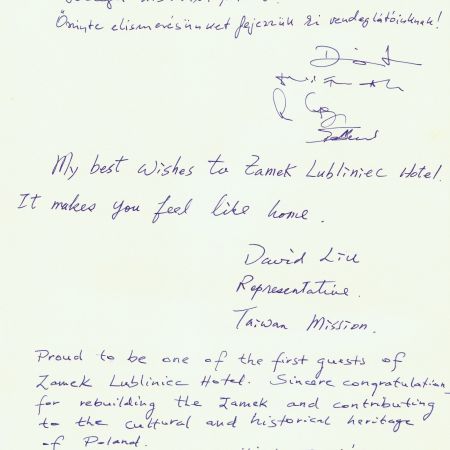 Őszinte elismerésünket fejezzük ki vendéglátóinknak!
My best wishes to Zamek Lubliniec Hotel.
It makes you feel like home.
David Liu
Representative.
Taiwan Mission.
Proud to be one of the first guests of
Zamek Lubliniec Hotel. Sincere congratulation
for rebuilding the Zamek and contributing
to the cultural and historical heritage
of Poland.